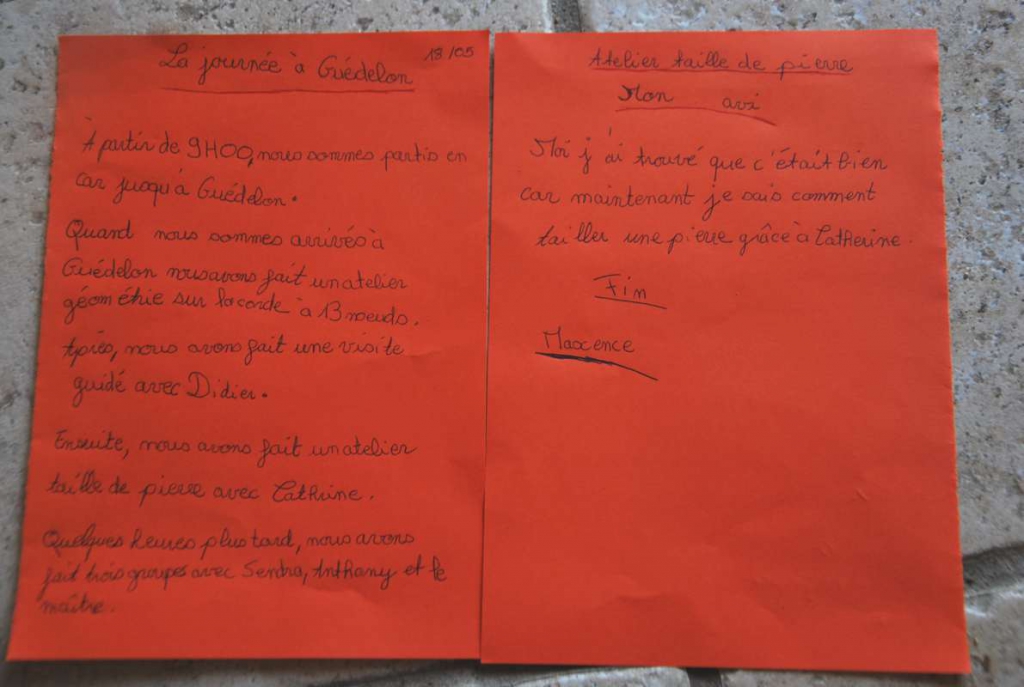 La journée à Guédelon 18/05
À partir de 9H00, nous sommes partis en
car jusqu'à Guédelon.
Quand nous sommes arrivés à
Guédelon nous avons fait un atelier
géométrie sur la corde à 13 noeuds.
Après, nous avons fait une visite
guidé avec Didier.
Ensuite, nous avons fait un atelier
taille de pierre avec Cathrine.
Quelques heures plus tard, nous avons
fait trois groupes avec Sendra, Anthany et le
maître.
Atelier taille de pierre
Mon avi
Moi j'ai trouvé que c'était bien
car maintenant je sais comment
tailler une pierre grâce à Catherine.
Fin
Maxence